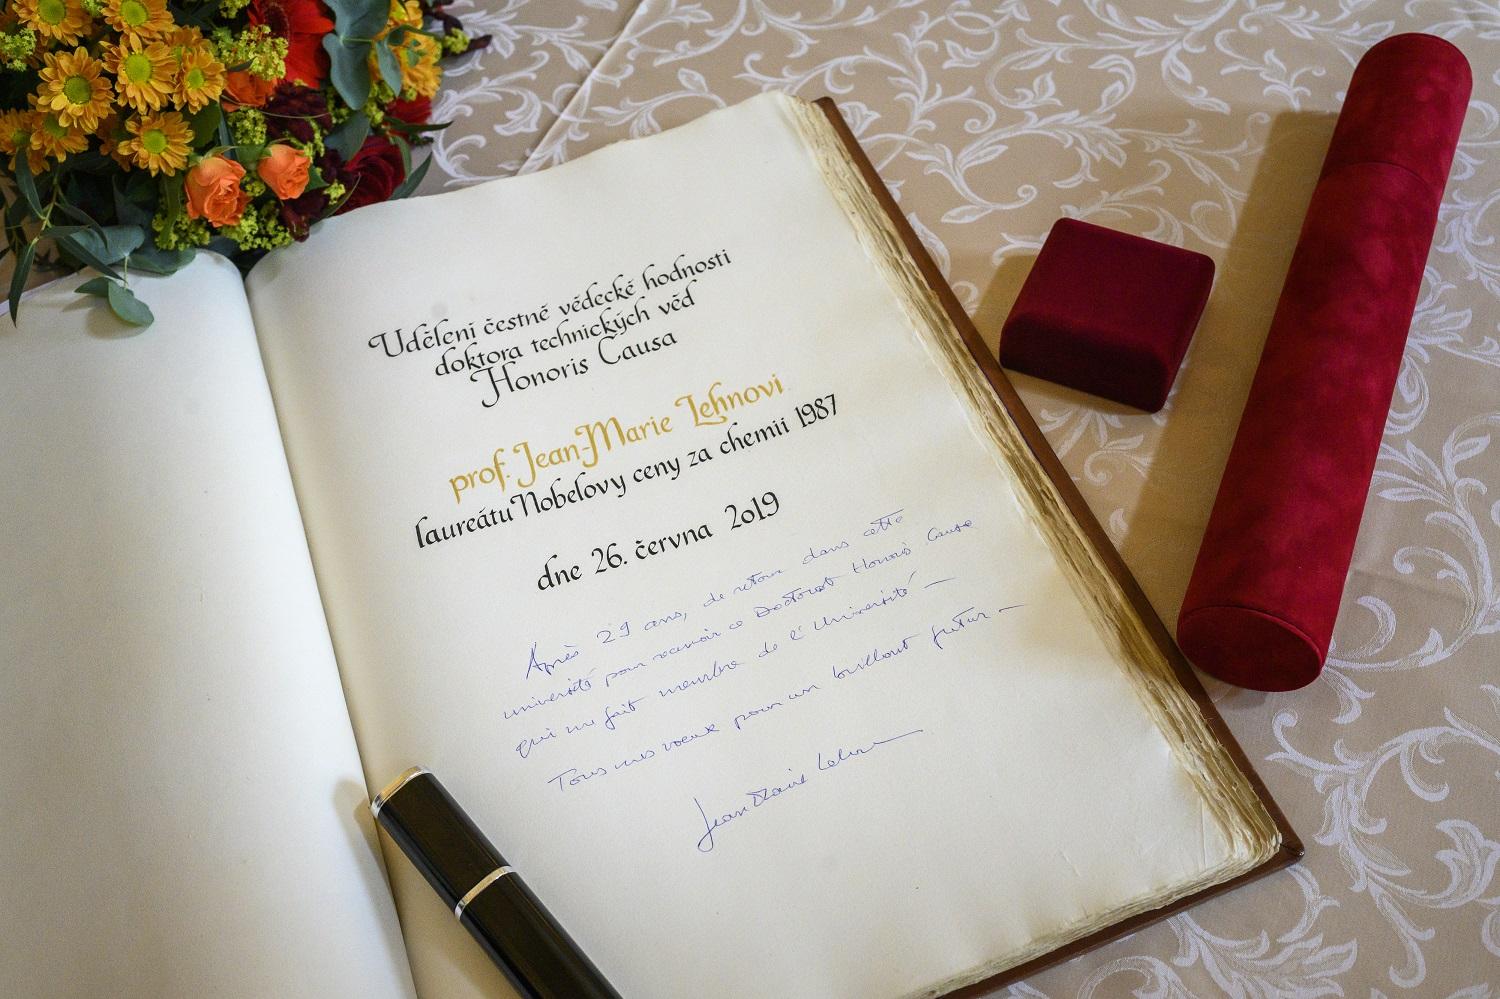 Udělení čestné vědecké hodnosti
doktora technických věd
Honoris Causa
prof. Jean-Marie Lehnovi
laureátu Nobelovy ceny za chemii 1987
dne 26. června 2019
Après 29 ans, de retour dans cette
université pour recevoir ce Doctorat Honoris Causa
qui me fait membre de l'Université —
Tous mes voeux pour un brillant futur —
Jean-Marie Lehn